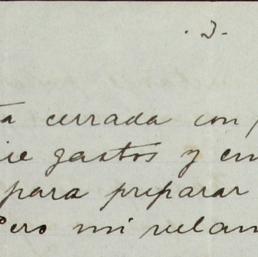 . 3 .
ta cerrada con
gastos y en
para preparar
Pero mi